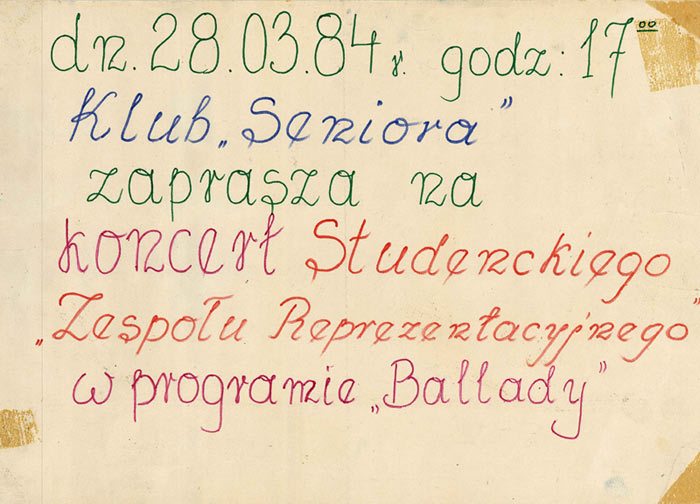 dn. 28.03.84 r. godz: 17⁰⁰
Klub „Seniora”
zaprasza na
koncert Studenckiego
„Zespołu Reprezentacyjnego”
w programie „Ballady”